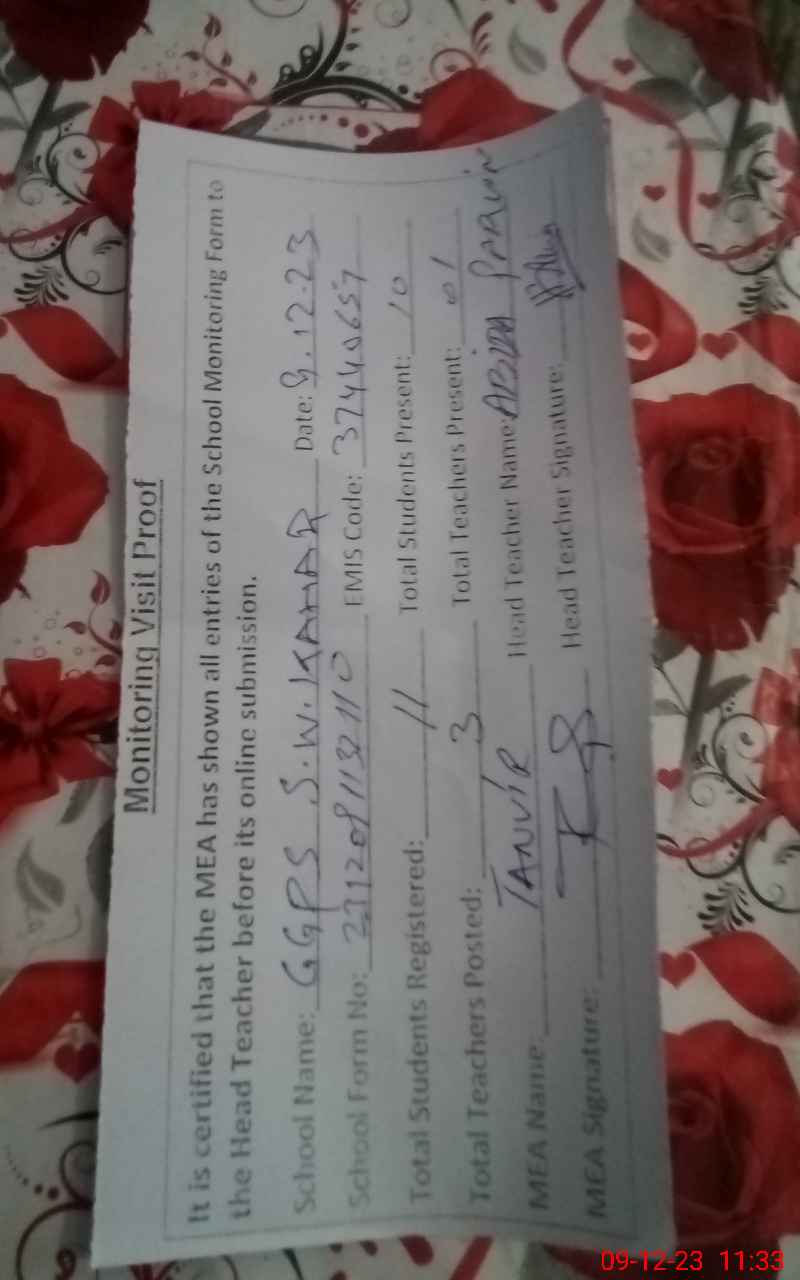 Monitoring Visit Proof
It is certified that the MEA has shown all entries of the School Monitoring Form to
the Head Teacher before its online submission.
School Name: GGPS S.W. KAHAR Date: 9.12.23
School Form No: EMIS Code: 37440657
Total Students Registered: 11 Total Students Present: 10
Total Teachers Posted: 3 Total Teachers Present: 01
MEA Name: TANVIR Head Teacher Name: ABIDA PARVIN
MEA Signature: Head Teacher Signature:
09-12-23 11:33